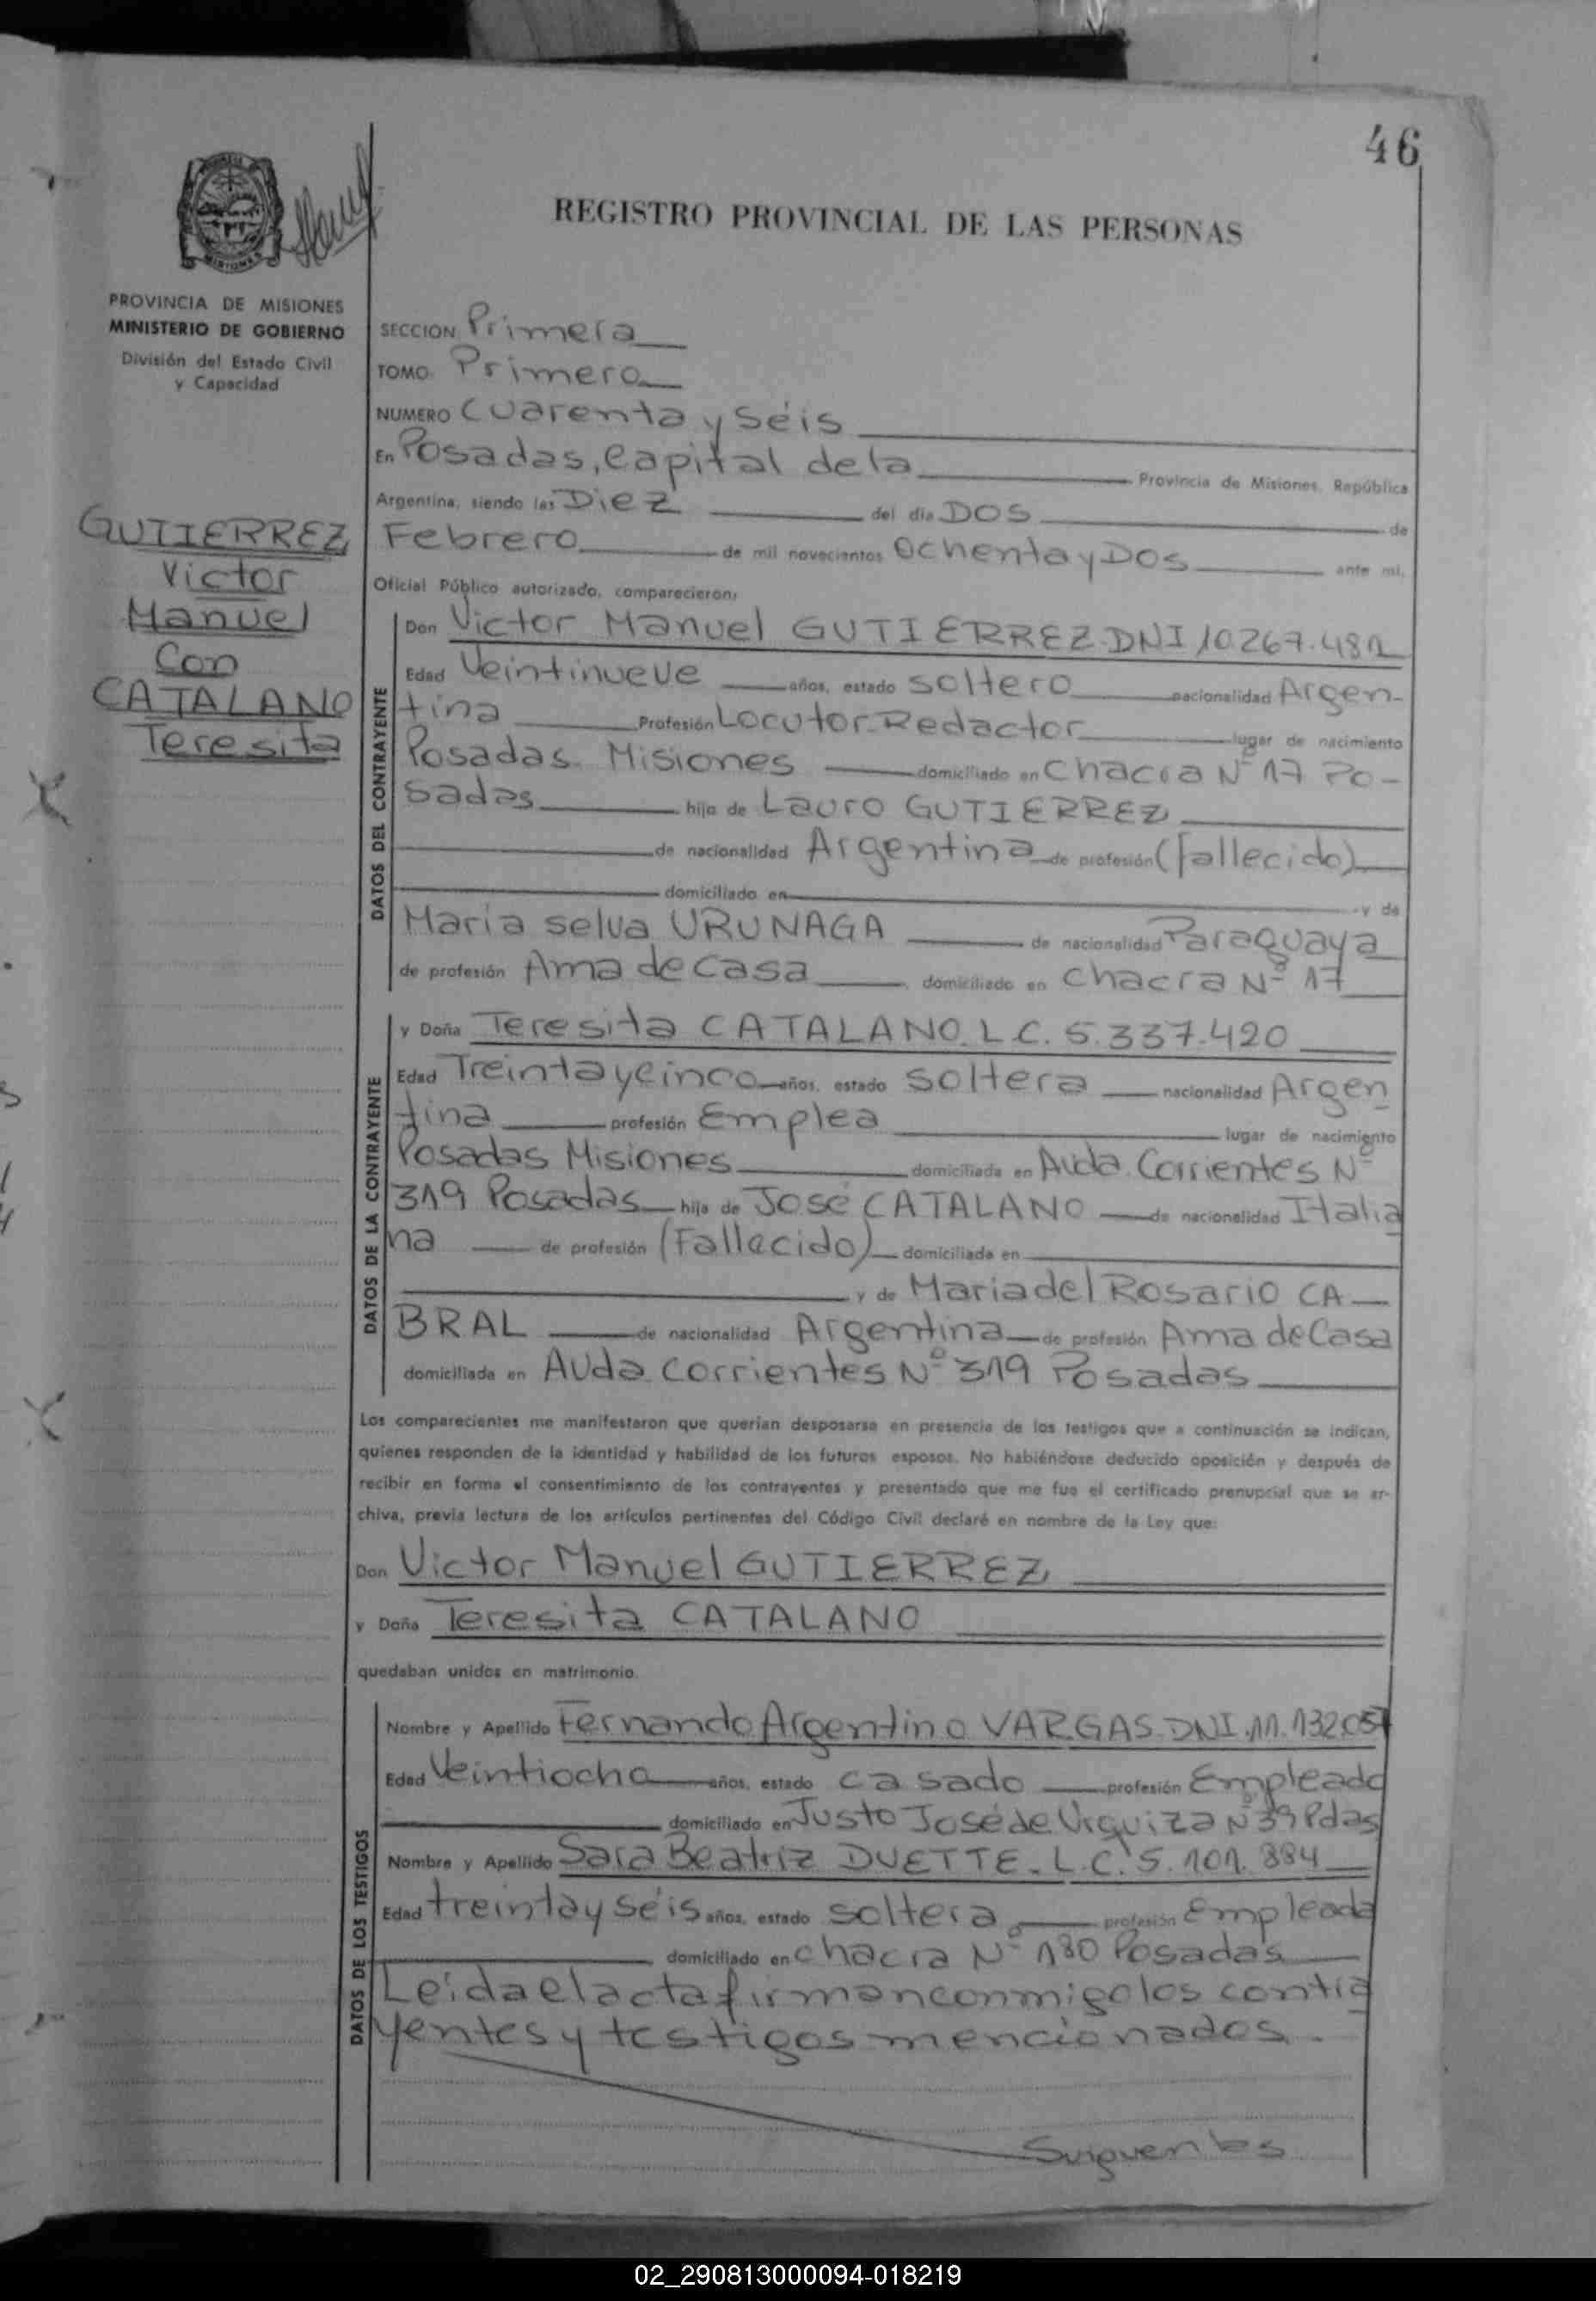 46
REGISTRO PROVINCIAL DE LAS PERSONAS
MISIONES
PROVINCIA DE MISIONES
MINISTERIO DE GOBIERNO
División del Estado Civil
y Capacidad
GUTIERREZ
Victor
Manuel
Con
CATALANO
Teresita
SECCION Primera
TOMO Primero
NUMERO Cuarenta y Séis
En Posadas, Capital de la Provincia de Misiones, República
Argentina, siendo las Diez del día DOS de
Febrero de mil novecientos Ochenta y Dos ante mi,
Oficial Público autorizado, comparecieron:
DATOS DEL CONTRAYENTE
Don Victor Manuel GUTIERREZ DNI 10.267.481
Edad Veintinueve años, estado soltero nacionalidad Argen-
tina Profesión Locutor-Redactor lugar de nacimiento
Posadas Misiones domiciliado en Chacra Nº 17 Po-
sadas hijo de Lauro GUTIERREZ
de nacionalidad Argentina de profesión (fallecido)
domiciliado en y de
Maria Selva URUNAGA de nacionalidad Paraguaya
de profesión Ama de Casa domiciliada en Chacra Nº 17
DATOS DE LA CONTRAYENTE
y Doña Teresita CATALANO. L.C. 5.337.420
Edad Treinta y cinco años, estado soltera nacionalidad Argen
tina profesión Emplea lugar de nacimiento
Posadas Misiones domiciliada en Avda. Corrientes Nº
319 Posadas hija de José CATALANO de nacionalidad Italia
na de profesión (Fallecido) domiciliada en
y de Maria del Rosario CA-
BRAL de nacionalidad Argentina de profesión Ama de Casa
domiciliada en Avda Corrientes Nº 319 Posadas
Los comparecientes me manifestaron que querían desposarse en presencia de los testigos que a continuación se indican,
quienes responden de la identidad y habilidad de los futuros esposos. No habiéndose deducido oposición y después de
recibir en forma el consentimiento de los contrayentes y presentado que me fue el certificado prenupcial que se ar-
chiva, previa lectura de los artículos pertinentes del Código Civil declaré en nombre de la Ley que:
Don Victor Manuel GUTIERREZ
y Doña Teresita CATALANO
quedaban unidos en matrimonio
DATOS DE LOS TESTIGOS
Nombre y Apellido Fernando Argentino VARGAS DNI.11.132.057
Edad Veintiocho años, estado casado profesión Empleado
domiciliado en Justo José de Urquiza Nº 39 Pdas
Nombre y Apellido Sara Beatriz DUETTE. L.C. 5.101.884
Edad treinta y séis años, estado soltera profesión Empleada
domiciliado en Chacra Nº 180 Posadas
Leída el acta firman conmigo los contra
yentes y testigos mencionados.
02_290813000094-018219